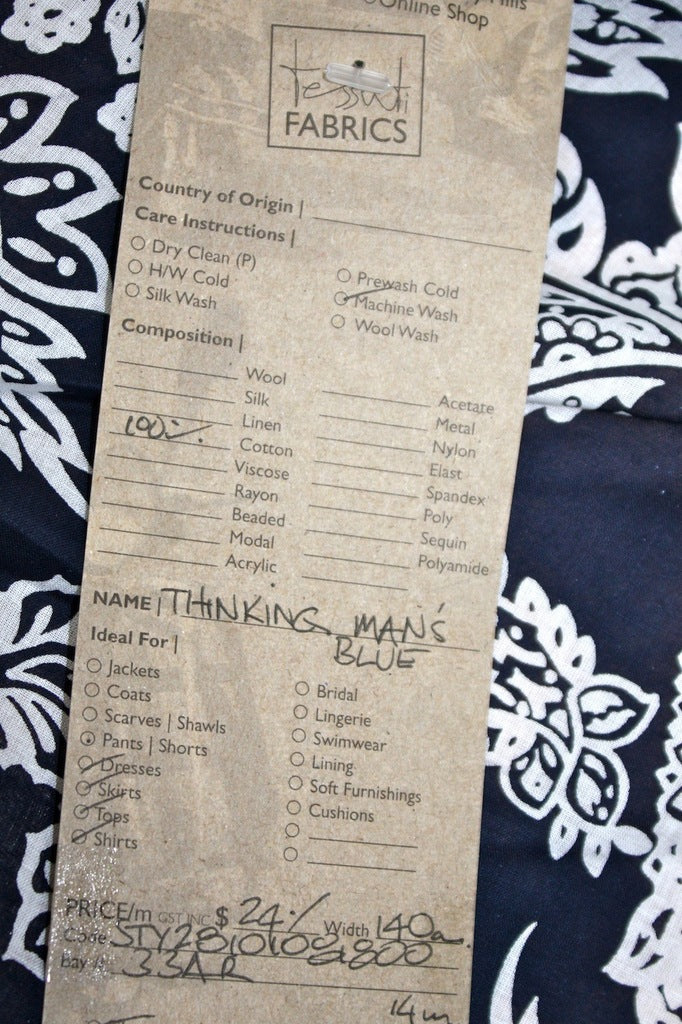 Online Shop
tessuti
FABRICS
Country of Origin |
Care Instructions |
Dry Clean (P)
H/W Cold
Silk Wash
Prewash Cold
Machine Wash
Wool Wash
Composition |
Wool
Silk
Linen
100% Cotton
Viscose
Rayon
Beaded
Modal
Acrylic
Acetate
Metal
Nylon
Elast
Spandex
Poly
Sequin
Polyamide
NAME | THINKING MAN'S
BLUE
Ideal For |
Jackets
Coats
Scarves | Shawls
Pants | Shorts
Dresses
Skirts
Tops
Shirts
Bridal
Lingerie
Swimwear
Lining
Soft Furnishings
Cushions
PRICE/m GST INC $ 24/ Width 140cm
Code
Bay #
14m